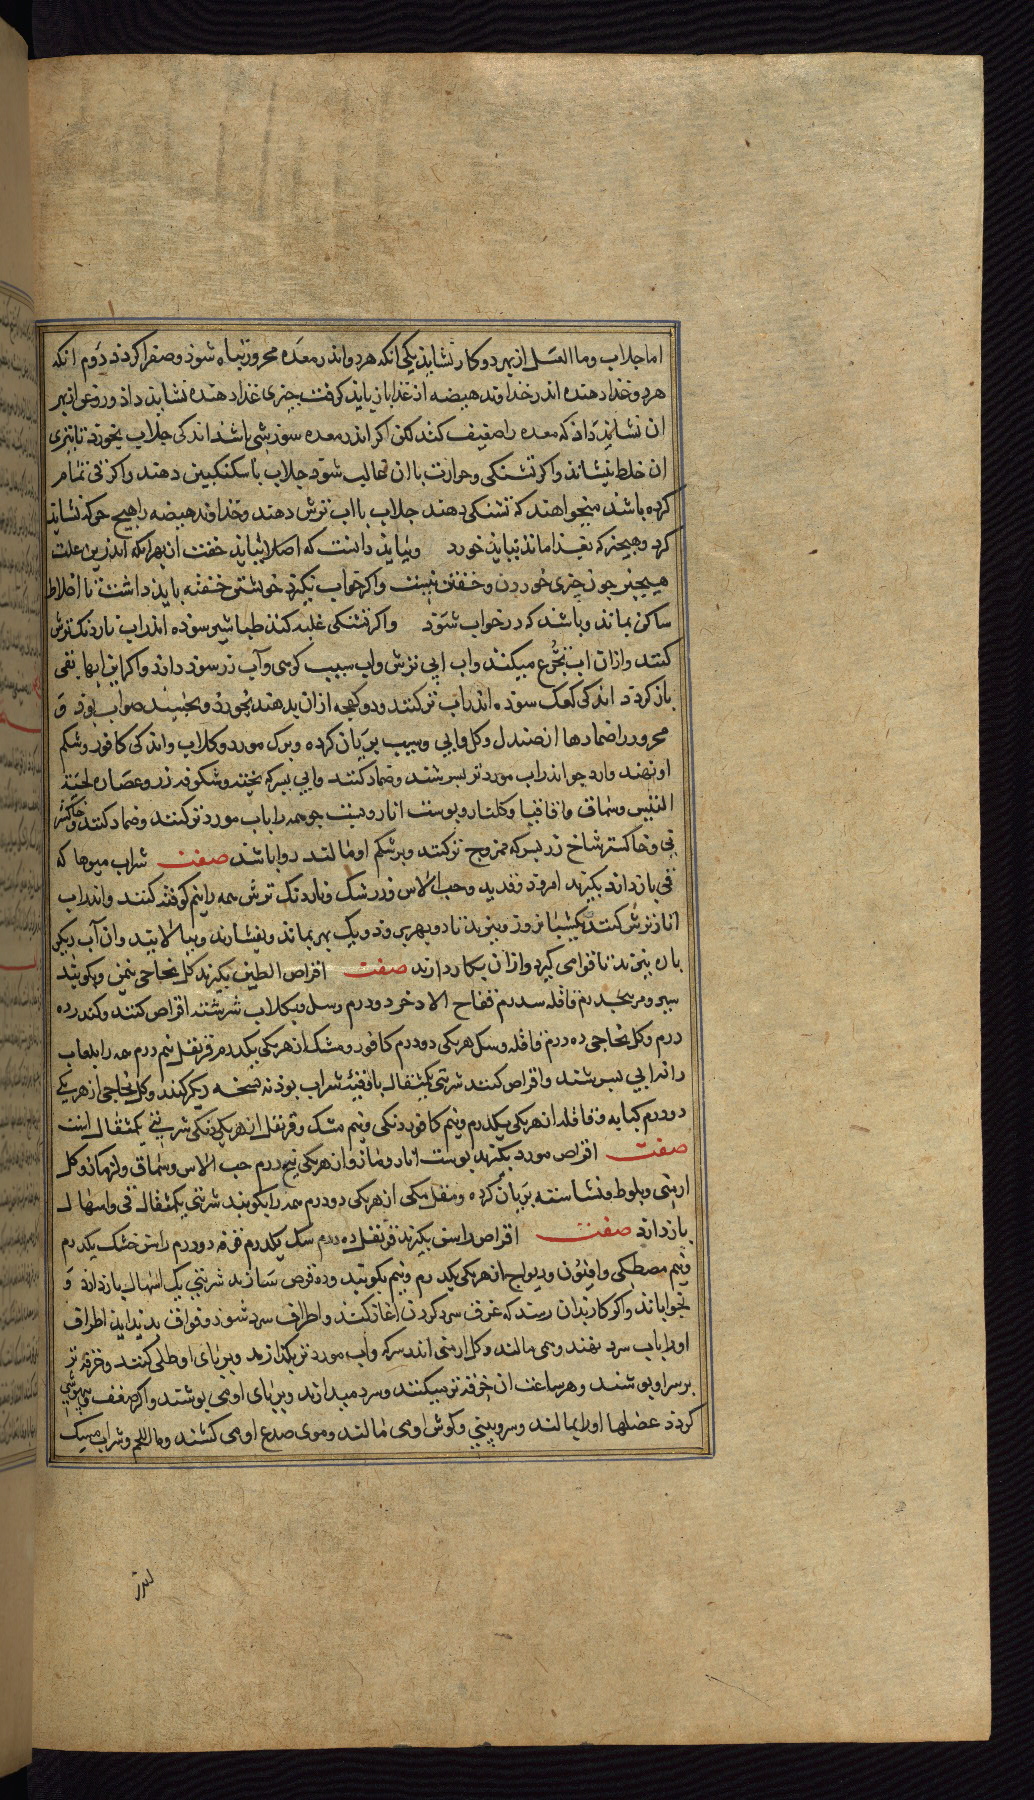 اما جلاب وما العسل از بهر دو کار نشاید یکی انکه هر دو اندر معده محرور تباه شوذ و صفرا کردد دوم انکه
هر دو غذا دهنده اند و خداوند هیضه از غذا باز باید کرفت چیزی غذا دهنده نشاید داذ و روغن از بهر
ان نشاید داذ که معده را ضعیف کند لکن اکر اندر معده سوزشی باشد اندکی جلاب بخورد تا تیزی
ان خلط بنشاند واکر تشنکی وحرارت با ان غالب شود جلاب با سکنکبین دهند واکر قی تمام
کرده باشد میخواهند که تشنکی دهند جلاب با اب ترش دهند وخداوند هیضه را هیچ حرکه نشاید
کرد وهیچیز که بغذا ماند نباید خورد وبباید دانست که اصلا نباید خفت از بهر انکه اندرین علت
هیچیز چون چیزی خوردن وخفتن نیست واکر خواب نکیرد خویشتن خفته باید داشت تا اخلاط
ساکن بماند وباشد که در خواب شود واکر تشنکی غلبه کند طباشیر سوده اندر اب ناردنک ترش
کنند وازان اب تجرع میکنند واب ابی ترش واب سیب کوهی وآب زرسود دارد واکر این ابها بقی
باز کردد اندکی کعک سوده اندر اب تر کنند ودو کفچه ازان بدهند بخورد وبخسبد صواب بود و
محرور را ضمادها از صندل وکل وابی وسیب بریان کرده وبرک مورد وکلاب واندکی کافور وشکم
او نهند وارد جو اندر اب مورد تر بسرشند وضماد کنند وابی بسرکه پخته وشکوفه زر وعصاره لحیة
التیس وسماق واقاقیا وکلنار وپوست انار وشب جو همه را باب مورد تر کنند وضماد کنند وخاکستر
نی وخاکستر شاخ رز بسرکه ممزوج تر کنند وبر شکم او مالند روا باشد صفت شراب میوها که
قی باز دارد بکیرند امرود وقدید وحب الاس وزرشک وناردنک ترش همه را نیم کوفته کنند واندر اب
انار ترش کنند یکشبانروز وبپزند تا دو بهر برود ویک بهر بماند وبفشارند وبپالایند وان آب دیکر
باره بپزند تا قوامی کیرد وازان بکار دارند صفت اقراص الطین بکیرند کل نجاحی بیست وبکویند
سیر ومر سجدرم قاقله سدرم فقاح الاذخر دودرم وسل وبکلاب سرشته اقراص کنند وکندر ده
درم وکل نجاحی ده درم قاقله وسک هریکی دودرم کافور ومشک از هریکی یکدرم قرنفل نیم درم همه را بلعاب
دانه ابی بسرشند واقراص کنند شربتی یکمثقال با وقیه شراب بوذنه نسخه دیکر کهند وکل نجاحی از هر یکی
دودرم کبابه وقاقله از هریکی یکدرم ونیم کافور دنکی ونیم مشک وقرنفل از هریکی دنکی شربتی یکمثقال است
صفت اقراص مورد بکیرند پوست انار ومازو از هریکی پنج درم حب الاس وسماق ولزیمازو کل
ارمنی وبلوط ونشاسته بریان کرده ومقل مکی از هریکی دودرم همه را بکوبند شربتی یکمثقال قی واسهال
باز دارد صفت اقراص راسن بکیرند قرنفل ده درم سک یکدرم قرفه دودرم راسن خشک یکدرم
ونیم مصطکی وافیون ودیواج از هریکی یکدرم ونیم بکوبند وده قرص سازند شربتی یکی اسهال باز دارد و
بخواباند واکر کار بدان رسد که عرق سرد کردن اغاز کنند واطراف سرد شود وفواق پدید اید اطراف
اورا باب سرد نهند وهمی مالند وکل ارمنی اندر سرکه واب مورد تر بکذارند وبر پای او طلی کنند وخرقه تر
بر سر او پوشند وهر ساعت ان خرقه تر میکنند وسرد میدارند وبر پای او همی پوشند واکر ضعف وبیهوشی
کردد عضلها اورا بمالند وسر وبینی وکوش او همی مالند وموی صدغ او همی کشند وما اللحم وشراب میبک